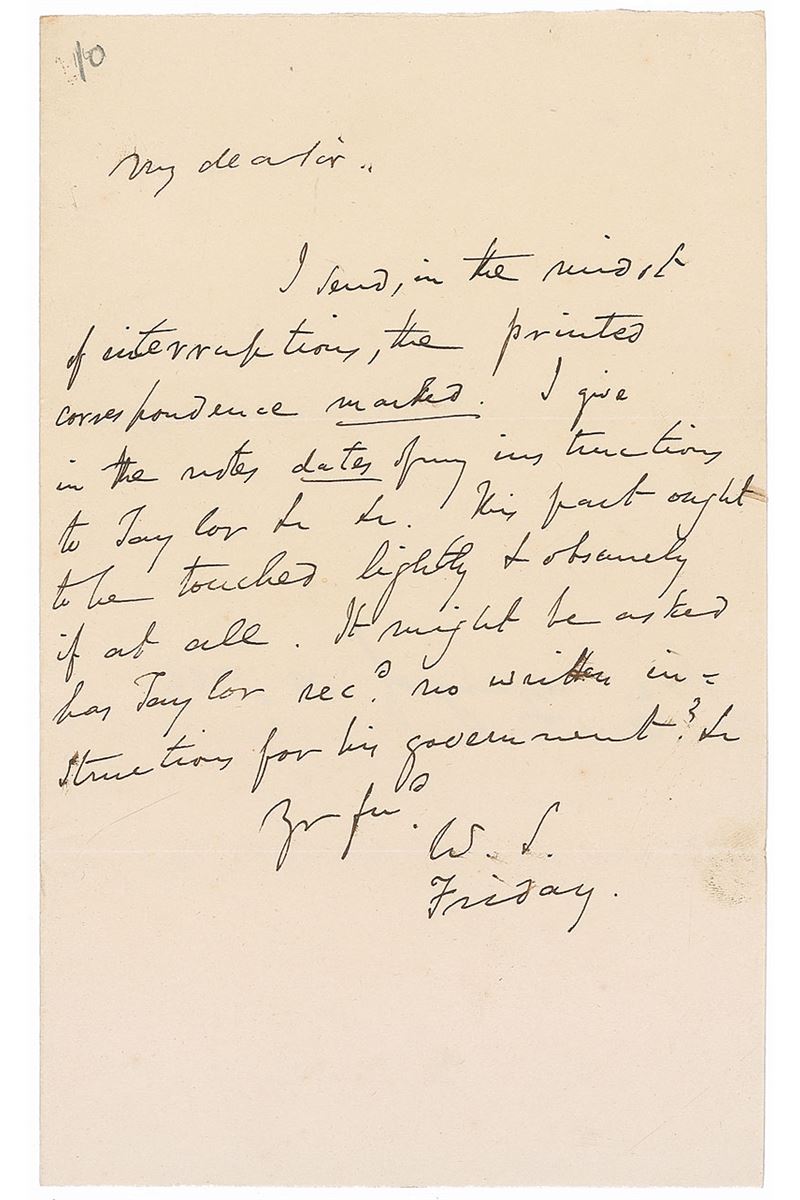 My dear Sir..
I send, in the midst
of interruptions, the printed
correspondence marked. I give
in the notes dates of my instructions
to Taylor &c &c. This part ought
to be touched lightly & obscurely
if at all. It might be asked
has Taylor recd. no written in=
structions for his government? &c
Yr frd.
W. S.
Friday.